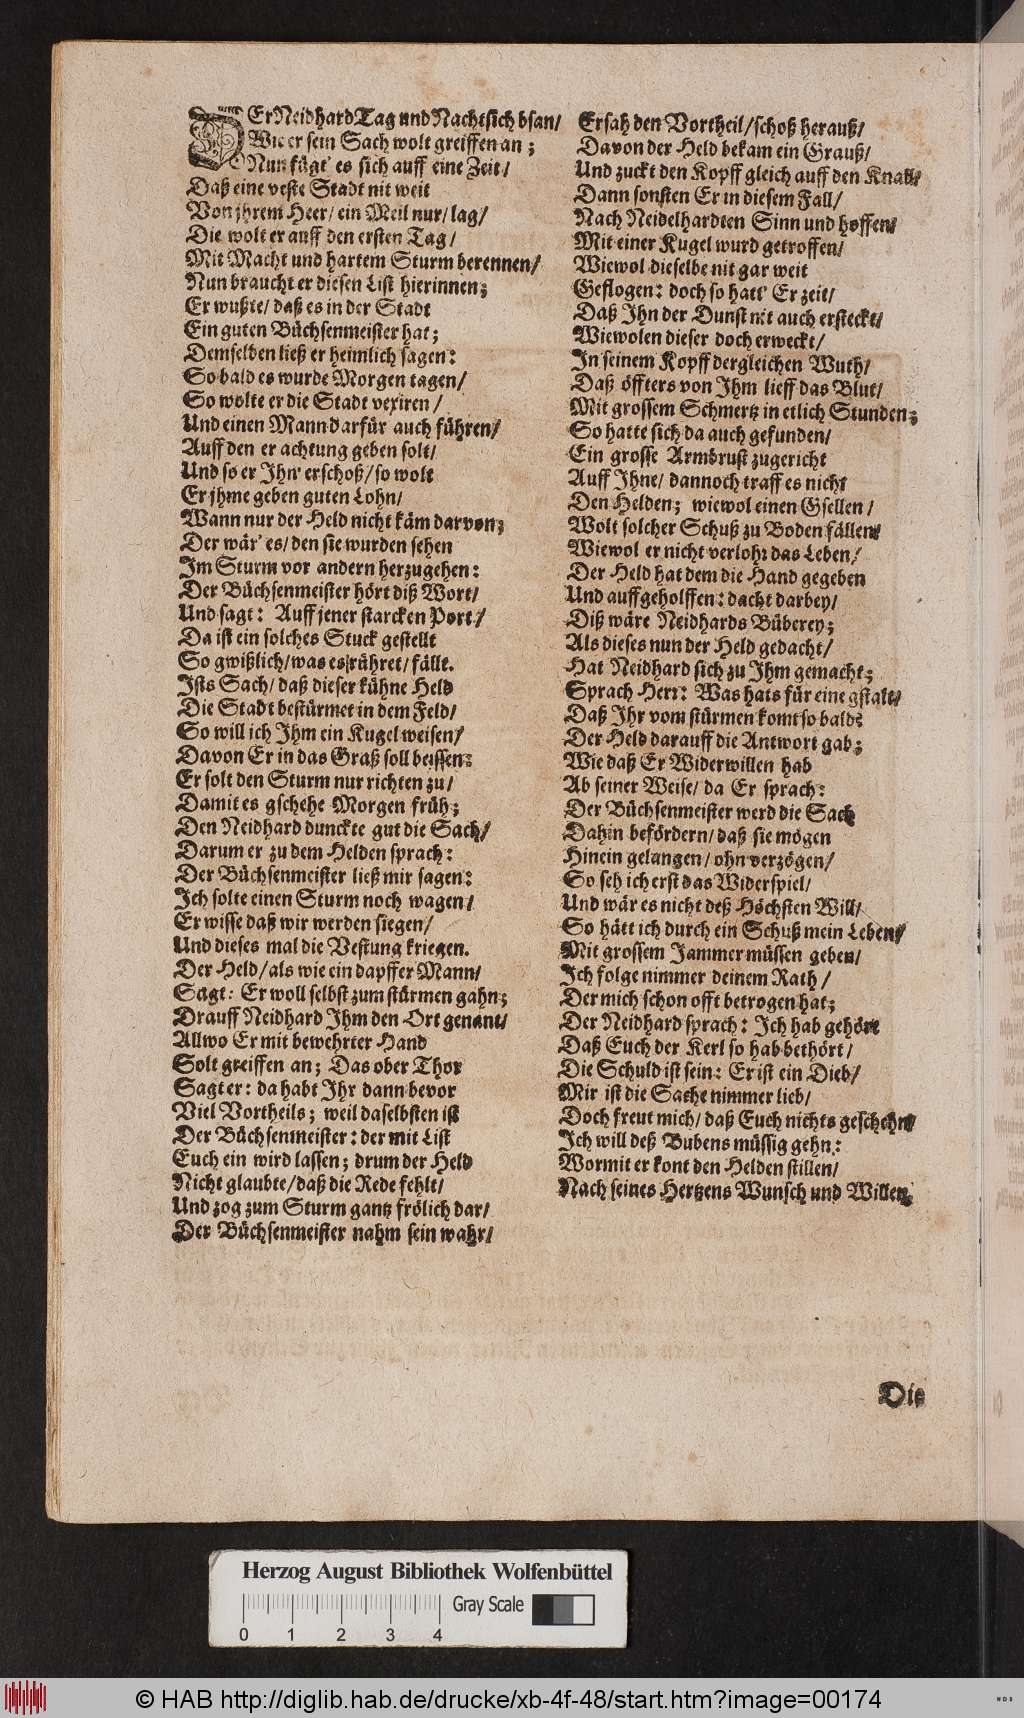 DEr Neidhard Tag und Nacht sich bsan/
Wie er sein Sach wolt greiffen an;
Nun fügt' es sich auff eine Zeit/
Daß eine veste Stadt nit weit
Von jhrem Heer/ ein Meil nur/ lag/
Die wolt er auff den ersten Tag/
Mit Macht und hartem Sturm berennen/
Nun braucht er diesen List hierinnen;
Er wußte/ daß es in der Stadt
Ein guten Büchsenmeister hat;
Demselben ließ er heimlich sagen:
So bald es wurde Morgen tagen/
So wolte er die Stadt vexiren/
Und einen Mann darfür auch führen/
Auff den er achtung geben solt/
Und so er Ihn' erschoß/ so wolt
Er jhme geben guten Lohn/
Wann nur der Held nicht käm darvon;
Der wär' es/ den sie wurden sehen
Im Sturm vor andern herzugehen:
Der Büchsenmeister hört diß Wort/
Und sagt: Auff jener starcken Port/
Da ist ein solches Stuck gestellt
So gwißlich/ was es rühret/ fällt.
Ists Sach/ daß dieser kühne Held
Die Stadt bestürmet in dem Feld/
So will ich Ihm ein Kugel weisen/
Davon Er in das Graß soll beissen:
Er solt den Sturm nur richten zu/
Damit es gschehe Morgen früh;
Den Neidhard dunckte gut die Sach/
Darum er zu dem Helden sprach:
Der Büchsenmeister ließ mir sagen:
Ich solte einen Sturm noch wagen/
Er wisse daß wir werden siegen/
Und dieses mal die Vestung kriegen.
Der Held/ als wie ein dapffer Mann/
Sagt: Er woll selbst zum stürmen gahn;
Drauff Neidhard Ihm den Ort genant/
Allwo Er mit bewehrter Hand
Solt greiffen an; Das ober Thor
Sagt er: da habt Ihr dann bevor
Viel Vortheils; weil daselbsten ist
Der Büchsenmeister: der mit List
Euch ein wird lassen; drum der Held
Nicht glaubte/ daß die Rede fehlt/
Und zog zum Sturm gantz frölich dar/
Der Büchsenmeister nahm sein wahr/
Ersah den Vortheil/ schoß herauß/
Davon der Held bekam ein Grauß/
Und zuckt den Kopff gleich auff den Knall/
Dann sonsten Er in diesem Fall/
Nach Neidelhardten Sinn und hoffen/
Mit einer Kugel wurd getroffen/
Wiewol dieselbe nit gar weit
Geflogen: doch so hatt' Er zeit/
Daß Ihn der Dunst nit auch ersteckt/
Wiewolen dieser doch erweckt/
In seinem Kopff dergleichen Wuth/
Daß öffters von Ihm lieff das Blut/
Mit grossem Schmertz in etlich Stunden;
So hatte sich da auch gefunden/
Ein grosse Armbrust zugericht
Auff Ihne/ dannoch traff es nicht
Den Helden; wiewol einen Gsellen/
Wolt solcher Schuß zu Boden fällen/
Wiewol er nicht verlohr das Leben/
Der Held hat dem die Hand gegeben
Und auffgeholffen: dacht darbey/
Diß wäre Neidhards Büberey;
Als dieses nun der Held gedacht/
Hat Neidhard sich zu Ihm gemacht;
Sprach Herr: Was hats für eine gstalt/
Daß Ihr vom stürmen komt so bald?
Der Held darauff die Antwort gab;
Wie daß Er Widerwillen hab
Ab seiner Weise/ da Er sprach:
Der Büchsenmeister werd die Sach
Dahin befördern/ daß sie mögen
Hinein gelangen/ ohn verzögen/
So seh ich erst das Widerspiel/
Und wär es nicht deß Höchsten Will/
So hätt ich durch ein Schuß mein Leben/
Mit grossem Jammer müssen geben/
Ich folge nimmer deinem Rath/
Der mich schon offt betrogen hat;
Der Neidhard sprach: Ich hab gehört
Daß Euch der Kerl so hab bethört/
Die Schuld ist sein: Er ist ein Dieb/
Mir ist die Sache nimmer lieb/
Doch freut mich/ daß Euch nichts geschehn/
Ich will deß Bubens müssig gehn:
Wormit er kont den Helden stillen/
Nach seines Hertzens Wunsch und Willen.
Die
Herzog August Bibliothek Wolfenbüttel
Gray Scale
0 1 2 3 4
© HAB http://diglib.hab.de/drucke/xb-4f-48/start.htm?image=00174